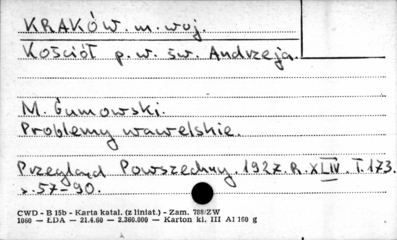 KRAKÓW. m. woj.
Kościół p. w. św. Andrzeja.
M. Gumowski.
Problemy wawelskie.
Przegląd Powszechny. 1927. R. XLIV. T. 173.
s. 57-90.
CWD - B 15b - Karta katal. (z liniat.) - Zam. 788/ZW
1060 — ŁDA — 21.4.60 — 2.360.000 — Karton kl. III A1 160 g